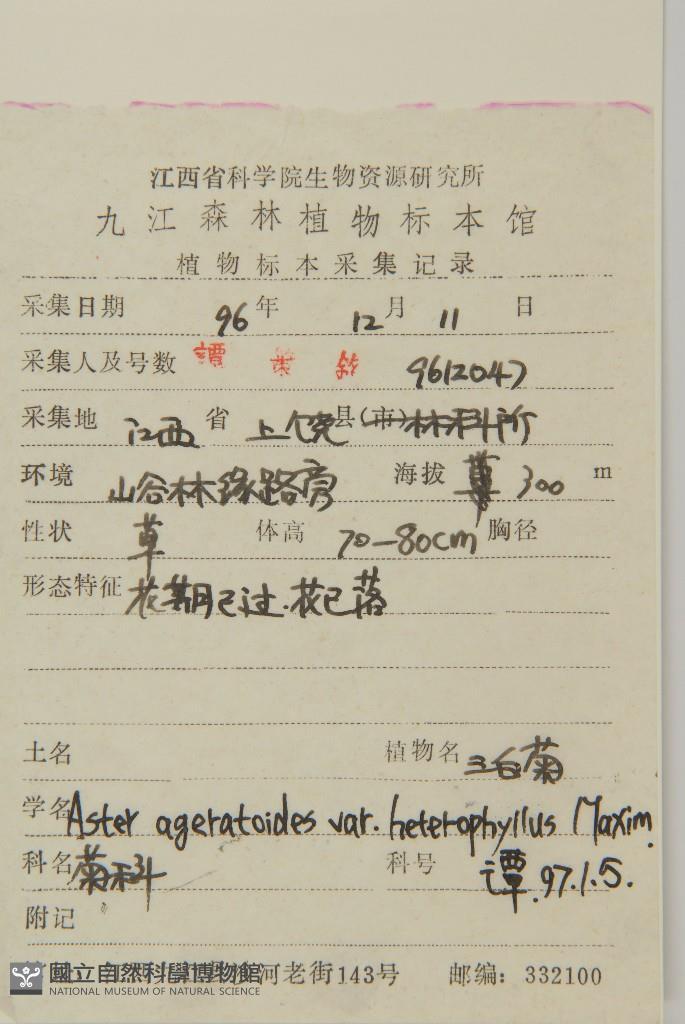 江西省科学院生物资源研究所
九江森林植物标本馆
植物标本采集记录
采集日期 96年 12月 11 日
采集人及号数 譚 9612047
采集地 江西省 上饶县(市)林科所
环境 山谷林缘路旁 海拔 300 m
性状 草 体高 70-80cm 胸径
形态特征 花期已过.花已落
土名 植物名 三白菊
学名 Aster ageratoides var. heterophyllus Maxim.
科名 菊科 科号 谭.97.1.5.
附记
國立自然科學博物館 河老街143号 邮编：332100
NATIONAL MUSEUM OF NATURAL SCIENCE